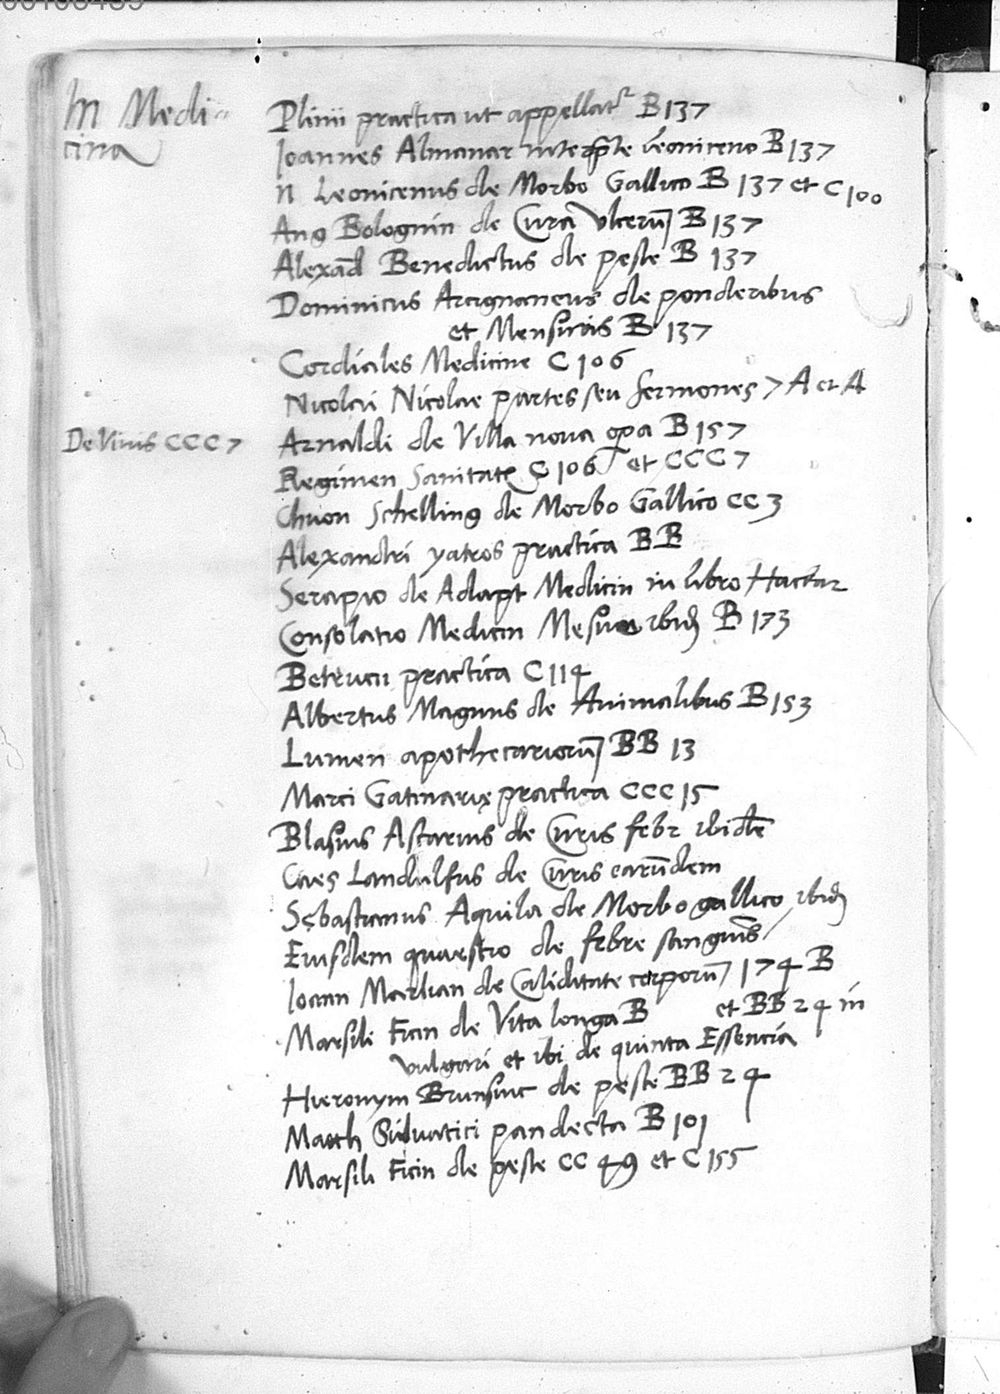 In Medi-
cina
Plinii practica ut appellatr B 137
Joannes Almanar interprte Leoniceno B 137
N Leonicenus de Morbo Gallico B 137 et C 100
Ang Bolognin de Cura Ulcerū B 137
Alexād Benedictus de peste B 137
Dominicus Arcignaneus de ponderibus
et Mensuris B 137
Cordiales Medicine C 106
Nicolai Nicolae partes seu sermones 7 A et A
De Vinis CCC 7
Arnaldi de Villa nova opa B 157
Regimen Sanitat C 106 et CCC 7
Chuon Schelling de Morbo Gallico CC 3
Alexandri yatros practica BB
Serapio de Adapt Medicin in libro Hactar
Consolatio Medicin Mesue ibid B 173
Betrucii practica C 114
Albertus Magnus de Animalibus B 153
Lumen apothecariorū BB 13
Marci Gatinariæ practica CCC 15
Blasius Astarius de Curis febr ibidē
Caes Landulfus de Curis earūdem
Sebastianus Aquila de Morbo gallico ibid
Eiusdem quaestio de febre sanguis
Joann Marlian de Caliditate corporū 174 B
Marsili Ficin de Vita longa B et BB 24 in
vulgari et ibi de quinta Essencia
Hieronym Brunsuic de peste BB 24
Math Silvatici pandecta B 101
Marsili Ficin de peste CC 49 et C 155